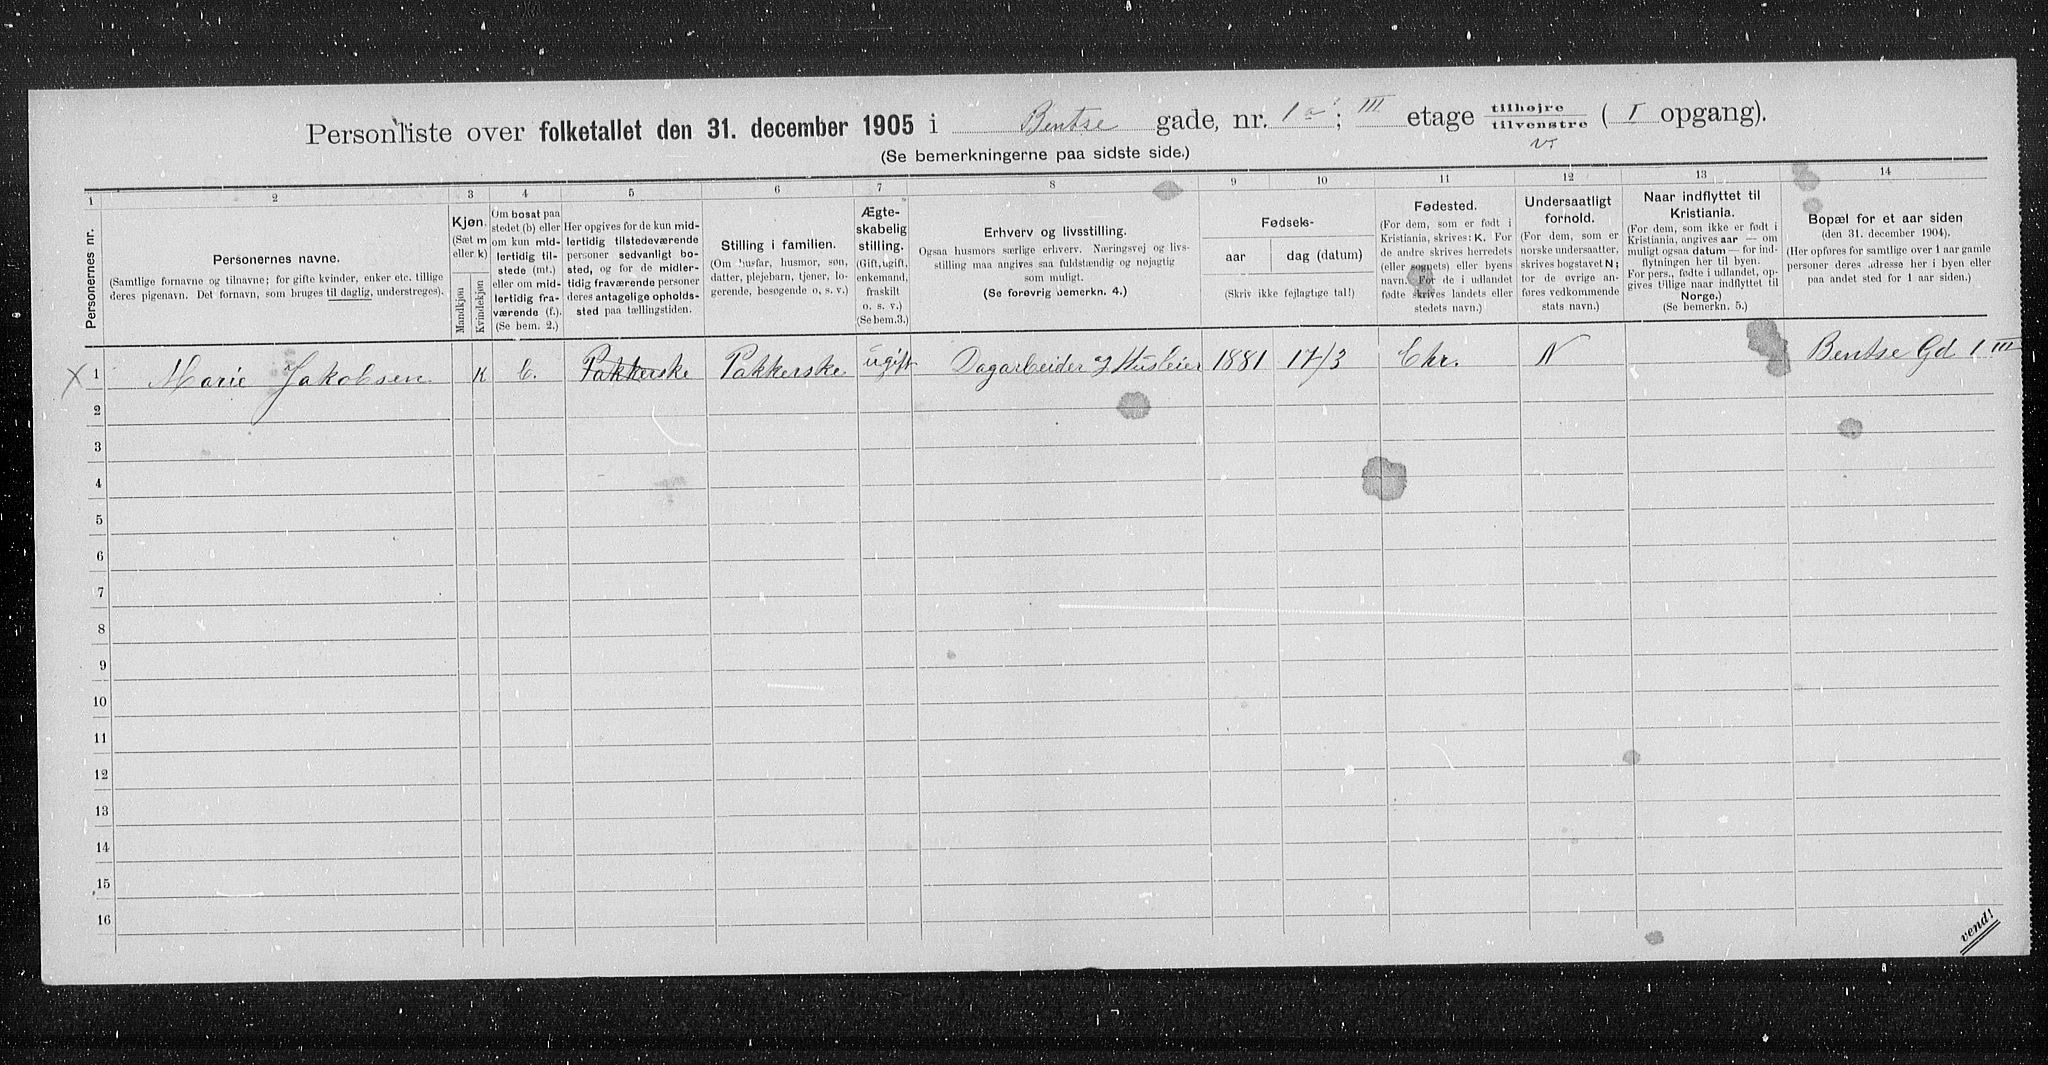 Personliste over folketallet den 31. december 1905 i Bentse gade, nr. 1a; III etage tilhøjre/tilvenstre (I opgang).
v.
(Se bemerkningerne paa sidste side.)
1 2 3 4 5 6 7 8 9 10 11 12 13 14
Personernes nr.
Personernes navne.
(Samtlige fornavne og tilnavne; for gifte kvinder, enker etc. tillige
deres pigenavn. Det fornavn, som bruges til daglig, understreges).
Kjøn.
(Sæt m
eller k)
Mandkjøn
Kvindekjøn
Om bosat paa
stedet (b) eller
om kun mid-
lertidig tilstede (mt.)
eller om mid-
lertidig fra-
værende (f.).
(Se bem. 2.)
Her opgives for de kun mid-
lertidig tilstedeværende
personer sedvanlig bo-
sted, og for de midler-
tidig fraværende personer
deres antagelige opholds-
sted paa tællingstiden.
Stilling i familien.
(Om husfar, husmor, søn,
datter, plejebarn, tjener, lo-
gerende, besøgende o. s. v.)
Ægte-
skabelig
stilling.
(Gift, ugift,
enkemand,
fraskilt
o. s. v.)
(Se bem.3.)
Erhverv og livsstilling.
Ogsaa husmors særlige erhverv. Næringsvej og livs-
stilling maa angives saa fuldstændig og nøjagtig
som muligt.
(Se forøvrig bemerkn. 4.)
Fødsels-
aar
dag (datum)
(Skriv ikke fejlagtige tal!)
Fødested.
(For dem, som er født i
Kristiania, skrives: K. For
de andre skrives herredets
(eller sognets) eller byens
navn. For de i udlandet
fødte skrives landets eller
stedets navn.)
Undersaatligt
forhold.
(For dem, som er
norske undersaatter,
skrives bogstavet N;
for de øvrige an-
føres vedkommende
stats navn.)
Naar indflyttet til
Kristiania.
(For dem, som ikke er født i
Kristiania, angives aar — om
muligt ogsaa datum — for ind-
flytningen her til byen.
For pers., fødte i udlandet, op-
gives tillige naar indflyttet til
Norge.)
(Se bemerkn. 5.)
Bopæl for et aar siden
(den 31. december 1904).
(Her opføres for samtlige over 1 aar gamle
personer deres adresse her i byen eller
paa andet sted for 1 aar siden.)
X 1 Marie Jakobsen K b. Pakkerske Pakkerske ugift Dagarbeider 1881 17/3 Chr. N Bentse Gd 1 III
2
3
4
5
6
7
8
9
10
11
12
13
14
15
16
vend!